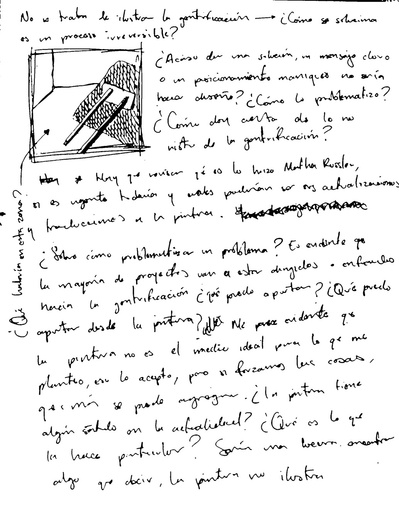 No se trata de ilustrar la gentrificación → ¿Cómo se soluciona
es un proceso irreversible?
¿Acaso dar una solución, un mensaje claro
o un posicionamiento maniqueo no sería
hacer diseño? ¿Cómo lo problematizo?
¿Cómo doy cuenta de lo no
visto de la gentrificación?
* Hay que revisar qué es lo hizo Martha Rosler,
si es vigente todavía y cuáles podrían ser sus actualizaciones
y traducciones a la pintura.
¿Qué habría en esta zona?
¿Sobre cómo problematizar un problema? Es evidente que
la mayoría de proyectos van a estar dirigidos o enfocados
hacia la gentrificación ¿qué puedo aportar? ¿Qué puedo
aportar desde la pintura? Me parece evidente que
la pintura no es el medio ideal para lo que me
planteo, eso lo acepto, pero si forzamos las cosas,
qué más se puede agregar. ¿La pintura tiene
algún sentido en la actualidad? ¿Qué es lo que
la hace particular? Sería una buena encontrar
algo que decir, la pintura no ilustra